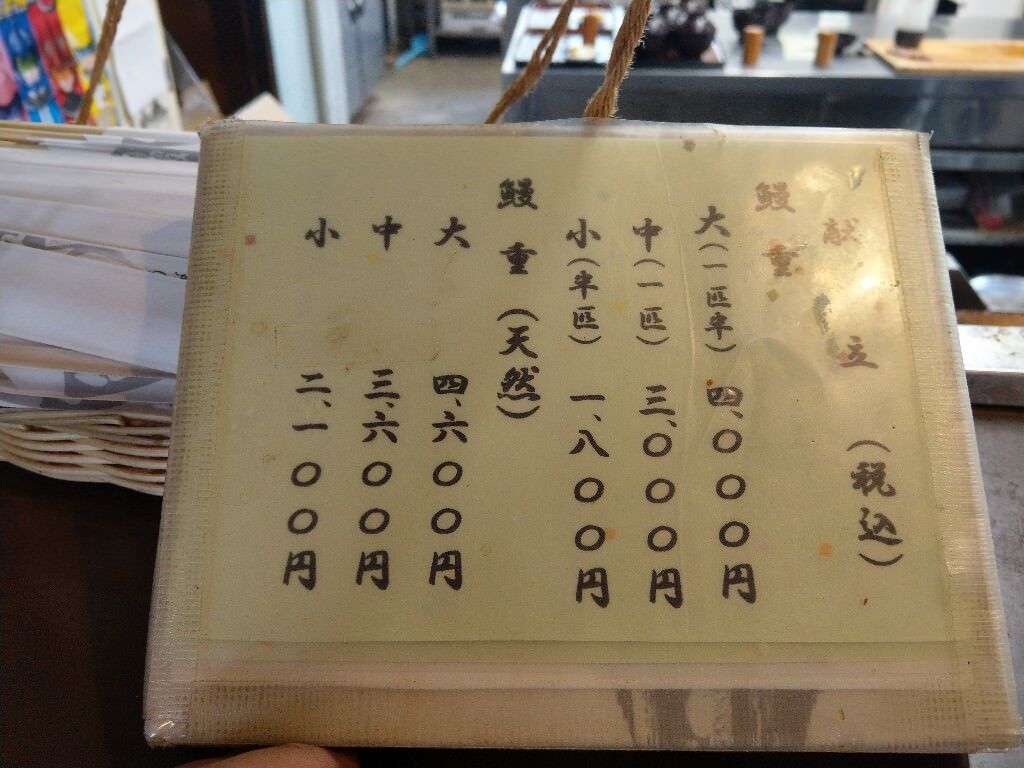 献立（税込）
鰻重
大（一匹半）四、〇〇〇円
中（一匹）三、〇〇〇円
小（半匹）一、八〇〇円
鰻重（天然）
大 四、六〇〇円
中 三、六〇〇円
小 二、一〇〇円